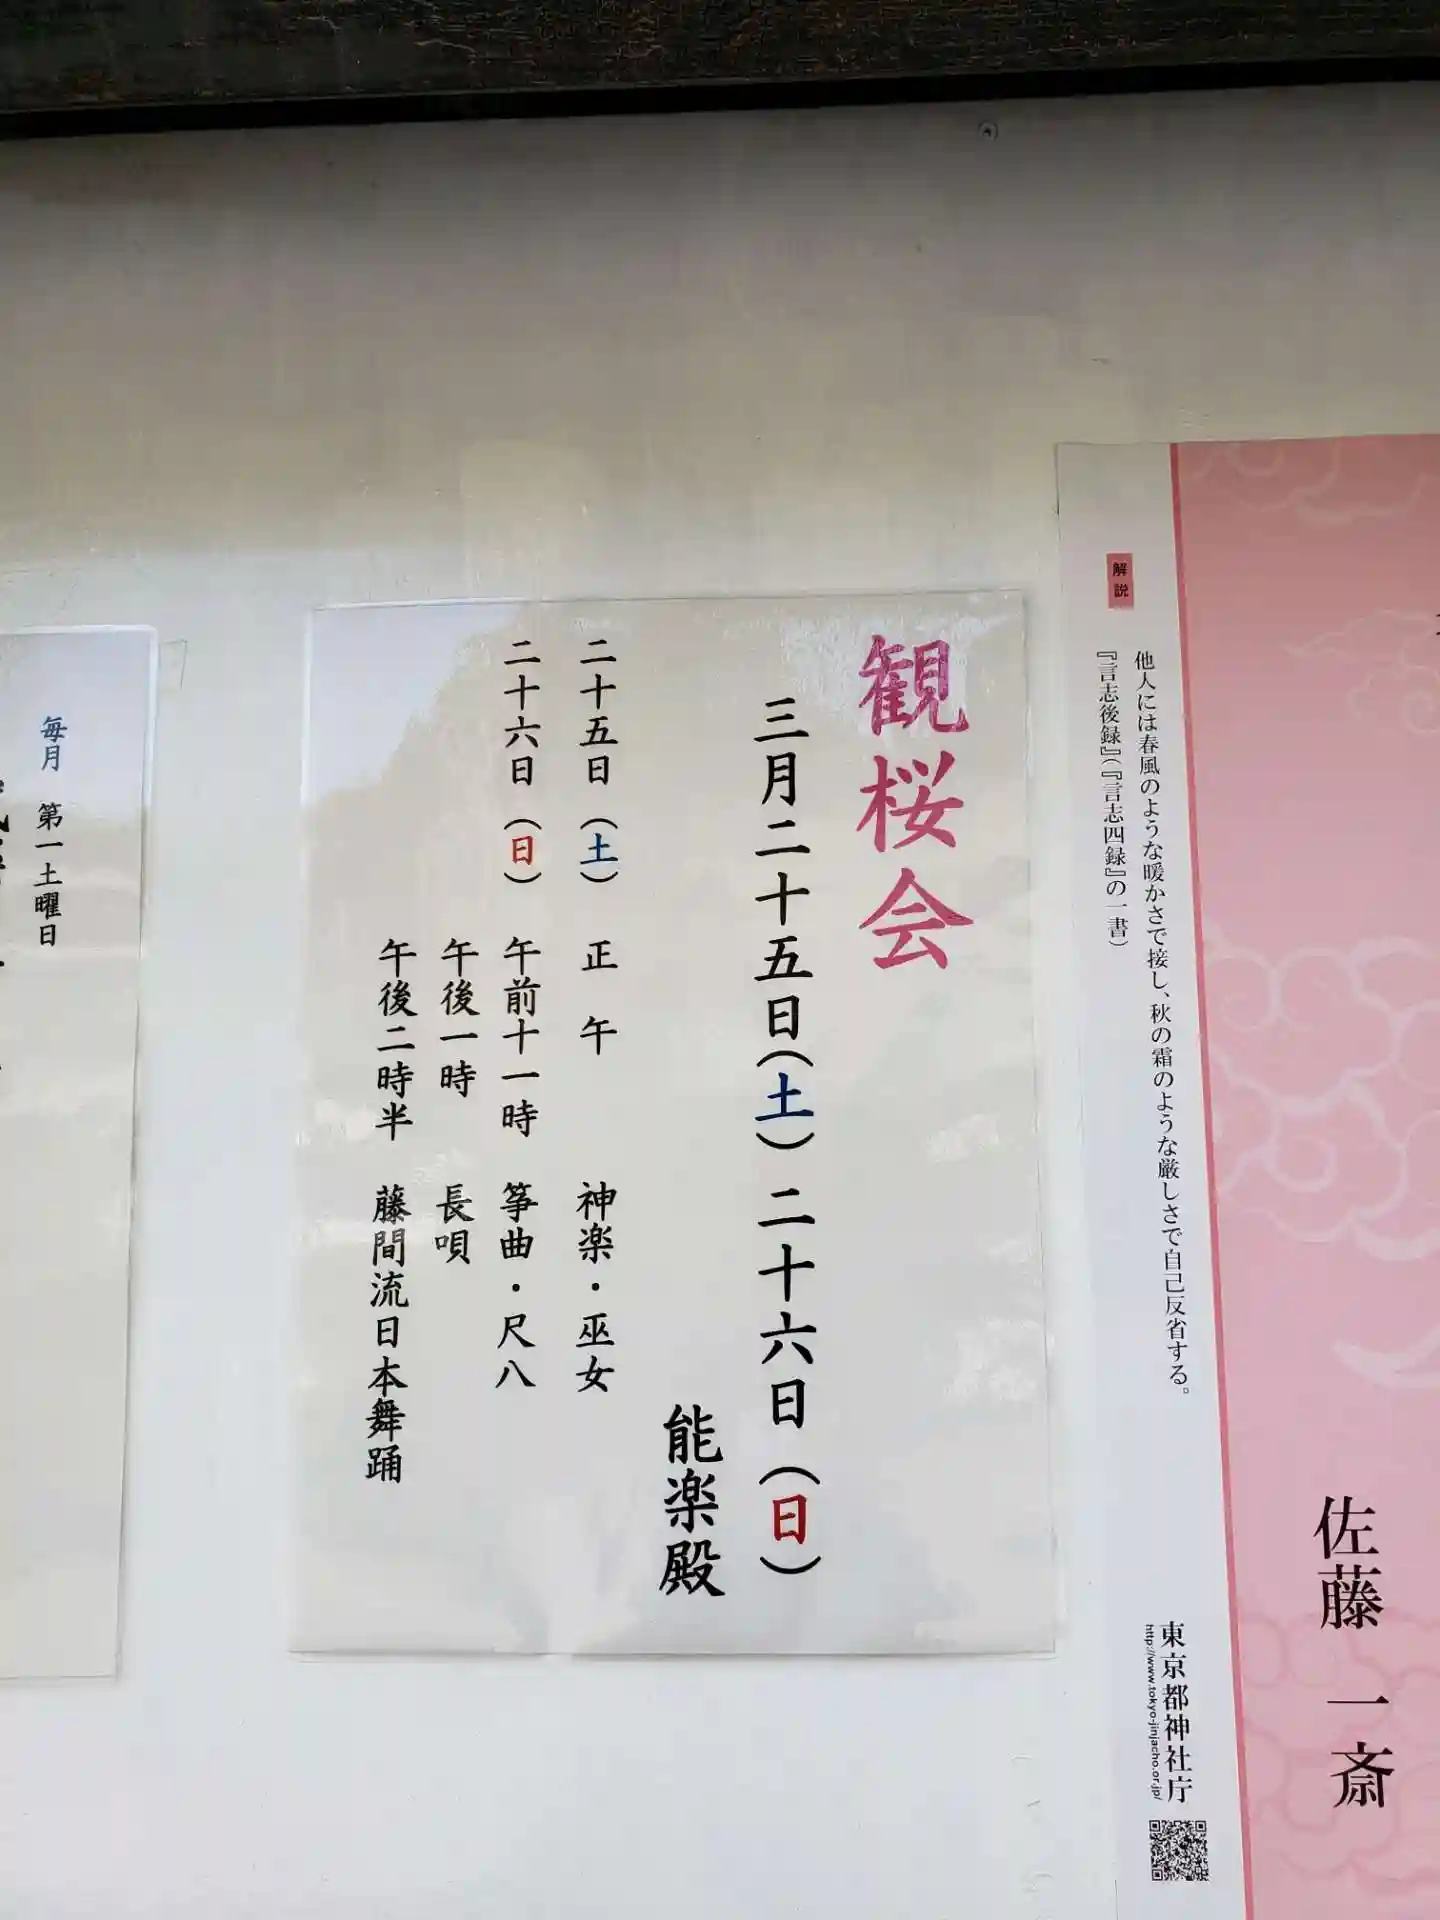 解説
他人には春風のような暖かさで接し、秋の霜のような厳しさで自己反省する。
『言志後録』(『言志四録』の一書)
佐藤 一斎
東京都神社庁
http://www.tokyo-jinjacho.or.jp/
観桜会
三月二十五日(土)二十六日(日)
能楽殿
二十五日(土) 正午 神楽・巫女
二十六日(日) 午前十一時 箏曲・尺八
午後一時 長唄
午後二時半 藤間流日本舞踊
毎月 第一土曜日